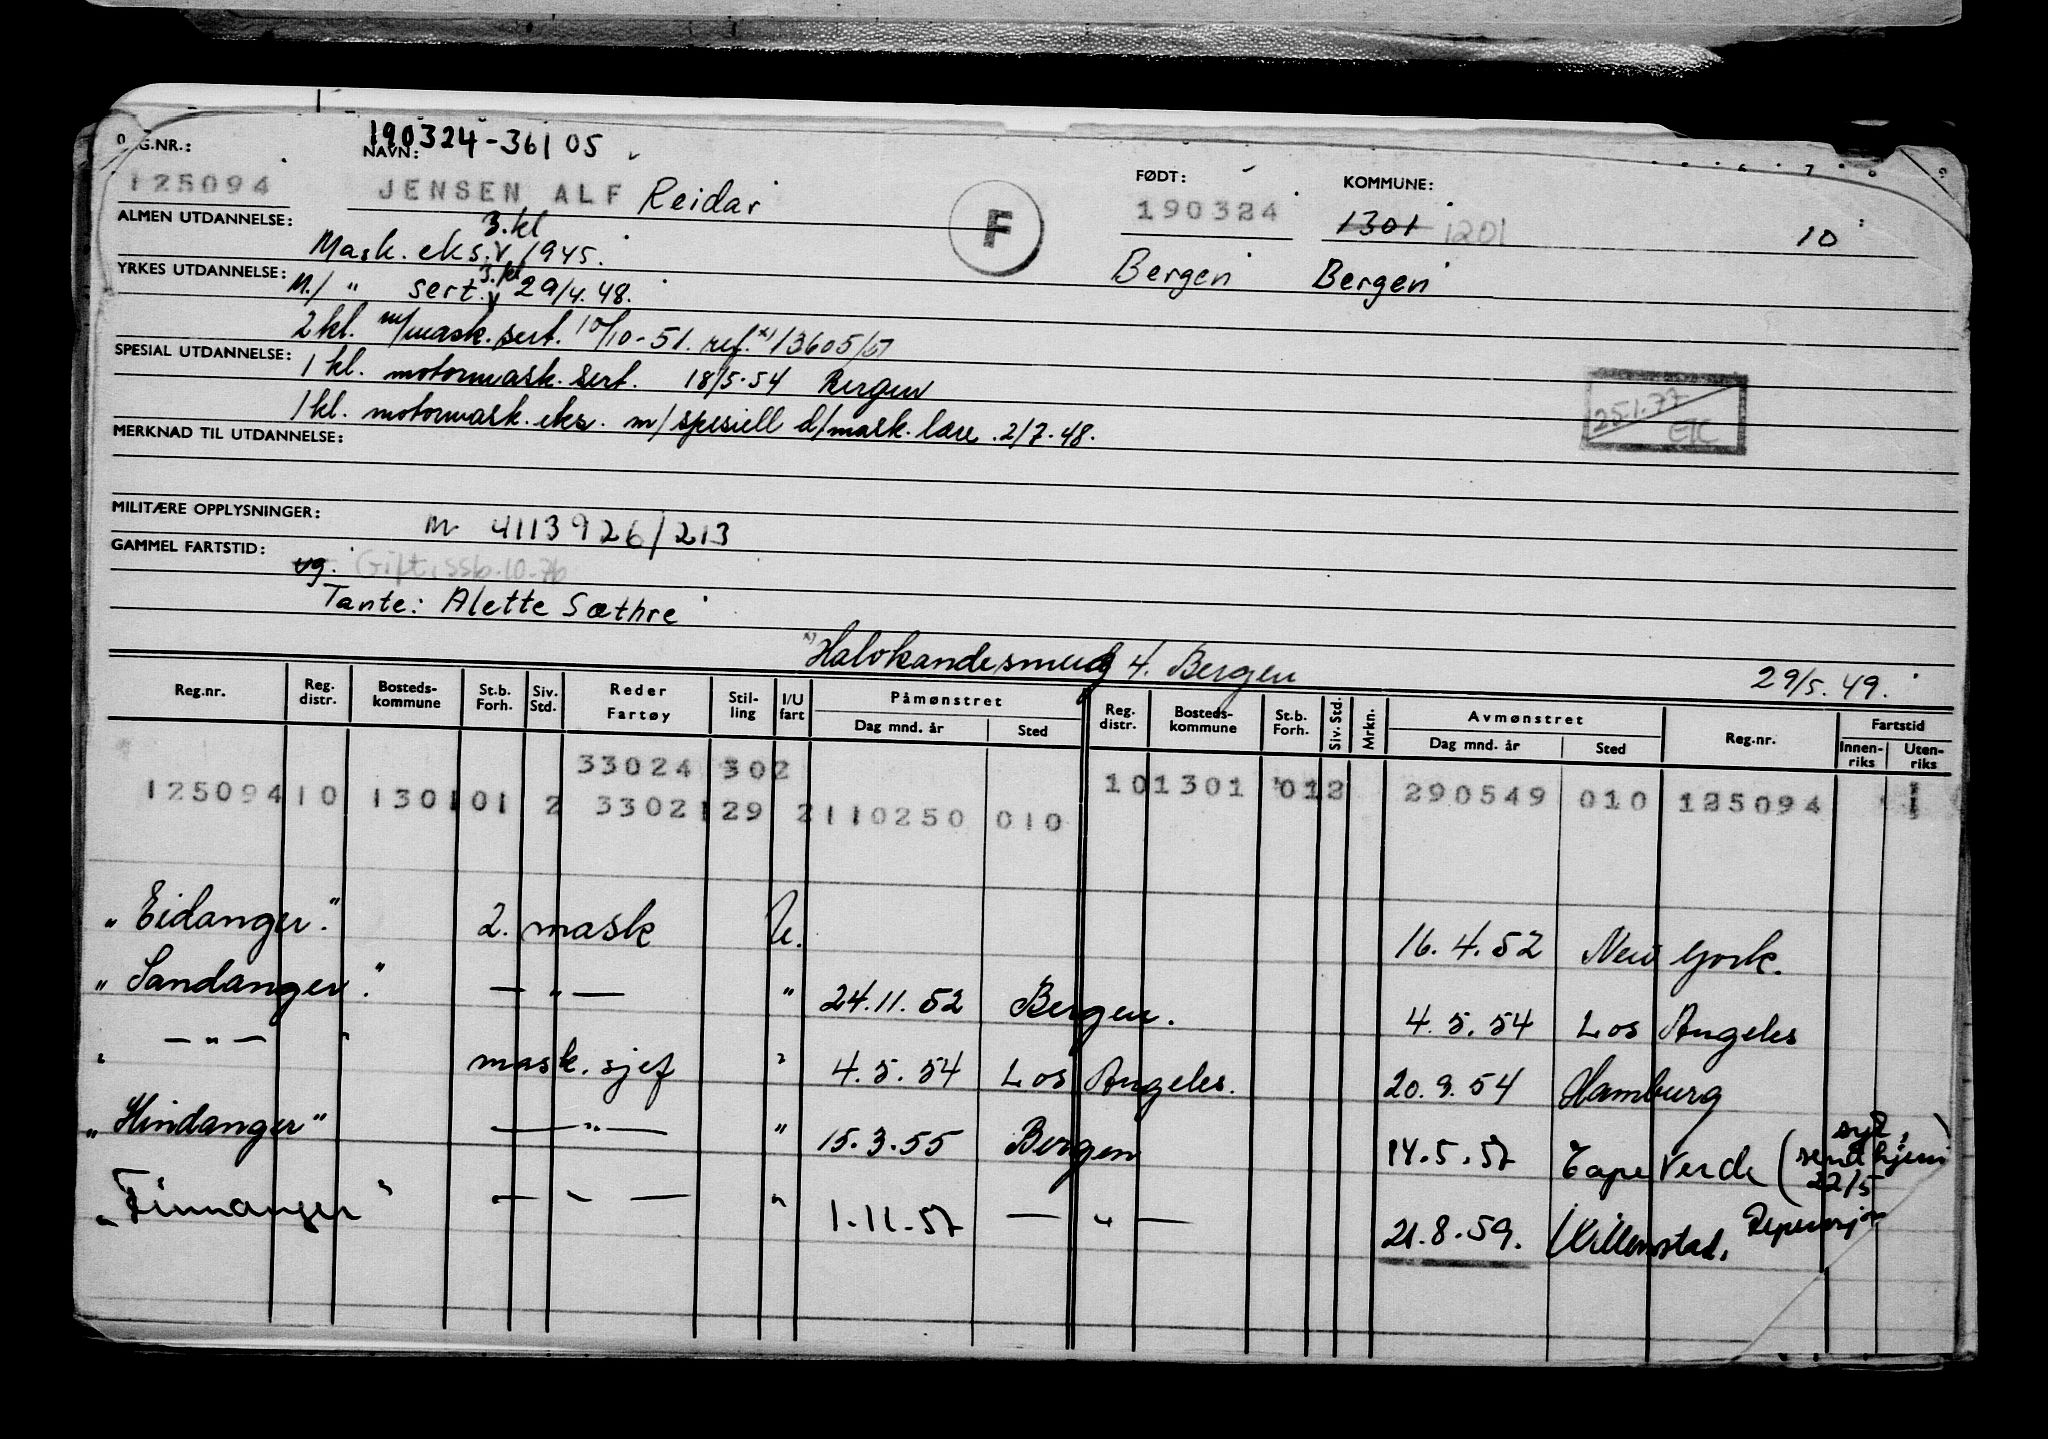 190324-36105
REG.NR.: NAVN: FØDT: KOMMUNE:
125094 JENSEN ALF Reidar F 190324 1301 1201 10
ALMEN UTDANNELSE: Mask. eks. 3. kl 1945. Bergen Bergen
YRKES UTDANNELSE: M./ " sert. 3. kl 29/4. 48.
2 kl. m/mask. sert. 10/10-51. ref. x) 13605/
SPESIAL UTDANNELSE: 1 kl. motormask. sert. 18/5.54 Bergen
1 kl. motormask. eks. m/spesiell d/mask. lære. 2/7.48.
25.1.77
EJC
MERKNAD TIL UTDANNELSE:
MILITÆRE OPPLYSNINGER: m 4113926/213
GAMMEL FARTSTID:
vg. Gift, ssb. 10.76
Tante: Alette Sæthre
x) 4. Bergen 29/5. 49.
Reg.nr. Reg. distr. Bosteds-kommune St.b. Forh. Siv. Std. Reder Fartøy Stil-ling I/U fart Påmønstret Dag mnd. år Sted Reg. distr. Bosteds-kommune St.b. Forh. Siv. Std. Mrkn. Avmønstret Dag mnd. år Sted Reg.nr. Fartstid Innen-riks Uten-riks
33024 302 10 1301 012 290549 010 125094 1
125094 10 1301 01 2 33021 29 2 110250 010
"Eidanger". 2. mask U. 16.4.52 New York.
"Sandanger". — " — " 24.11.52 Bergen. 4.5.54 Los Angeles
" — " — " mask. sjef " 4.5.54 Los Angeles. 20.9.54 Hamburg
"Hindanger" — " — " 15.3.55 Bergen 14.5.57 Cape Verde (syk, send hjem 22/5)
"Finnanger" — " — " 1.11.57 — " — 21.8.59. Willemstad.